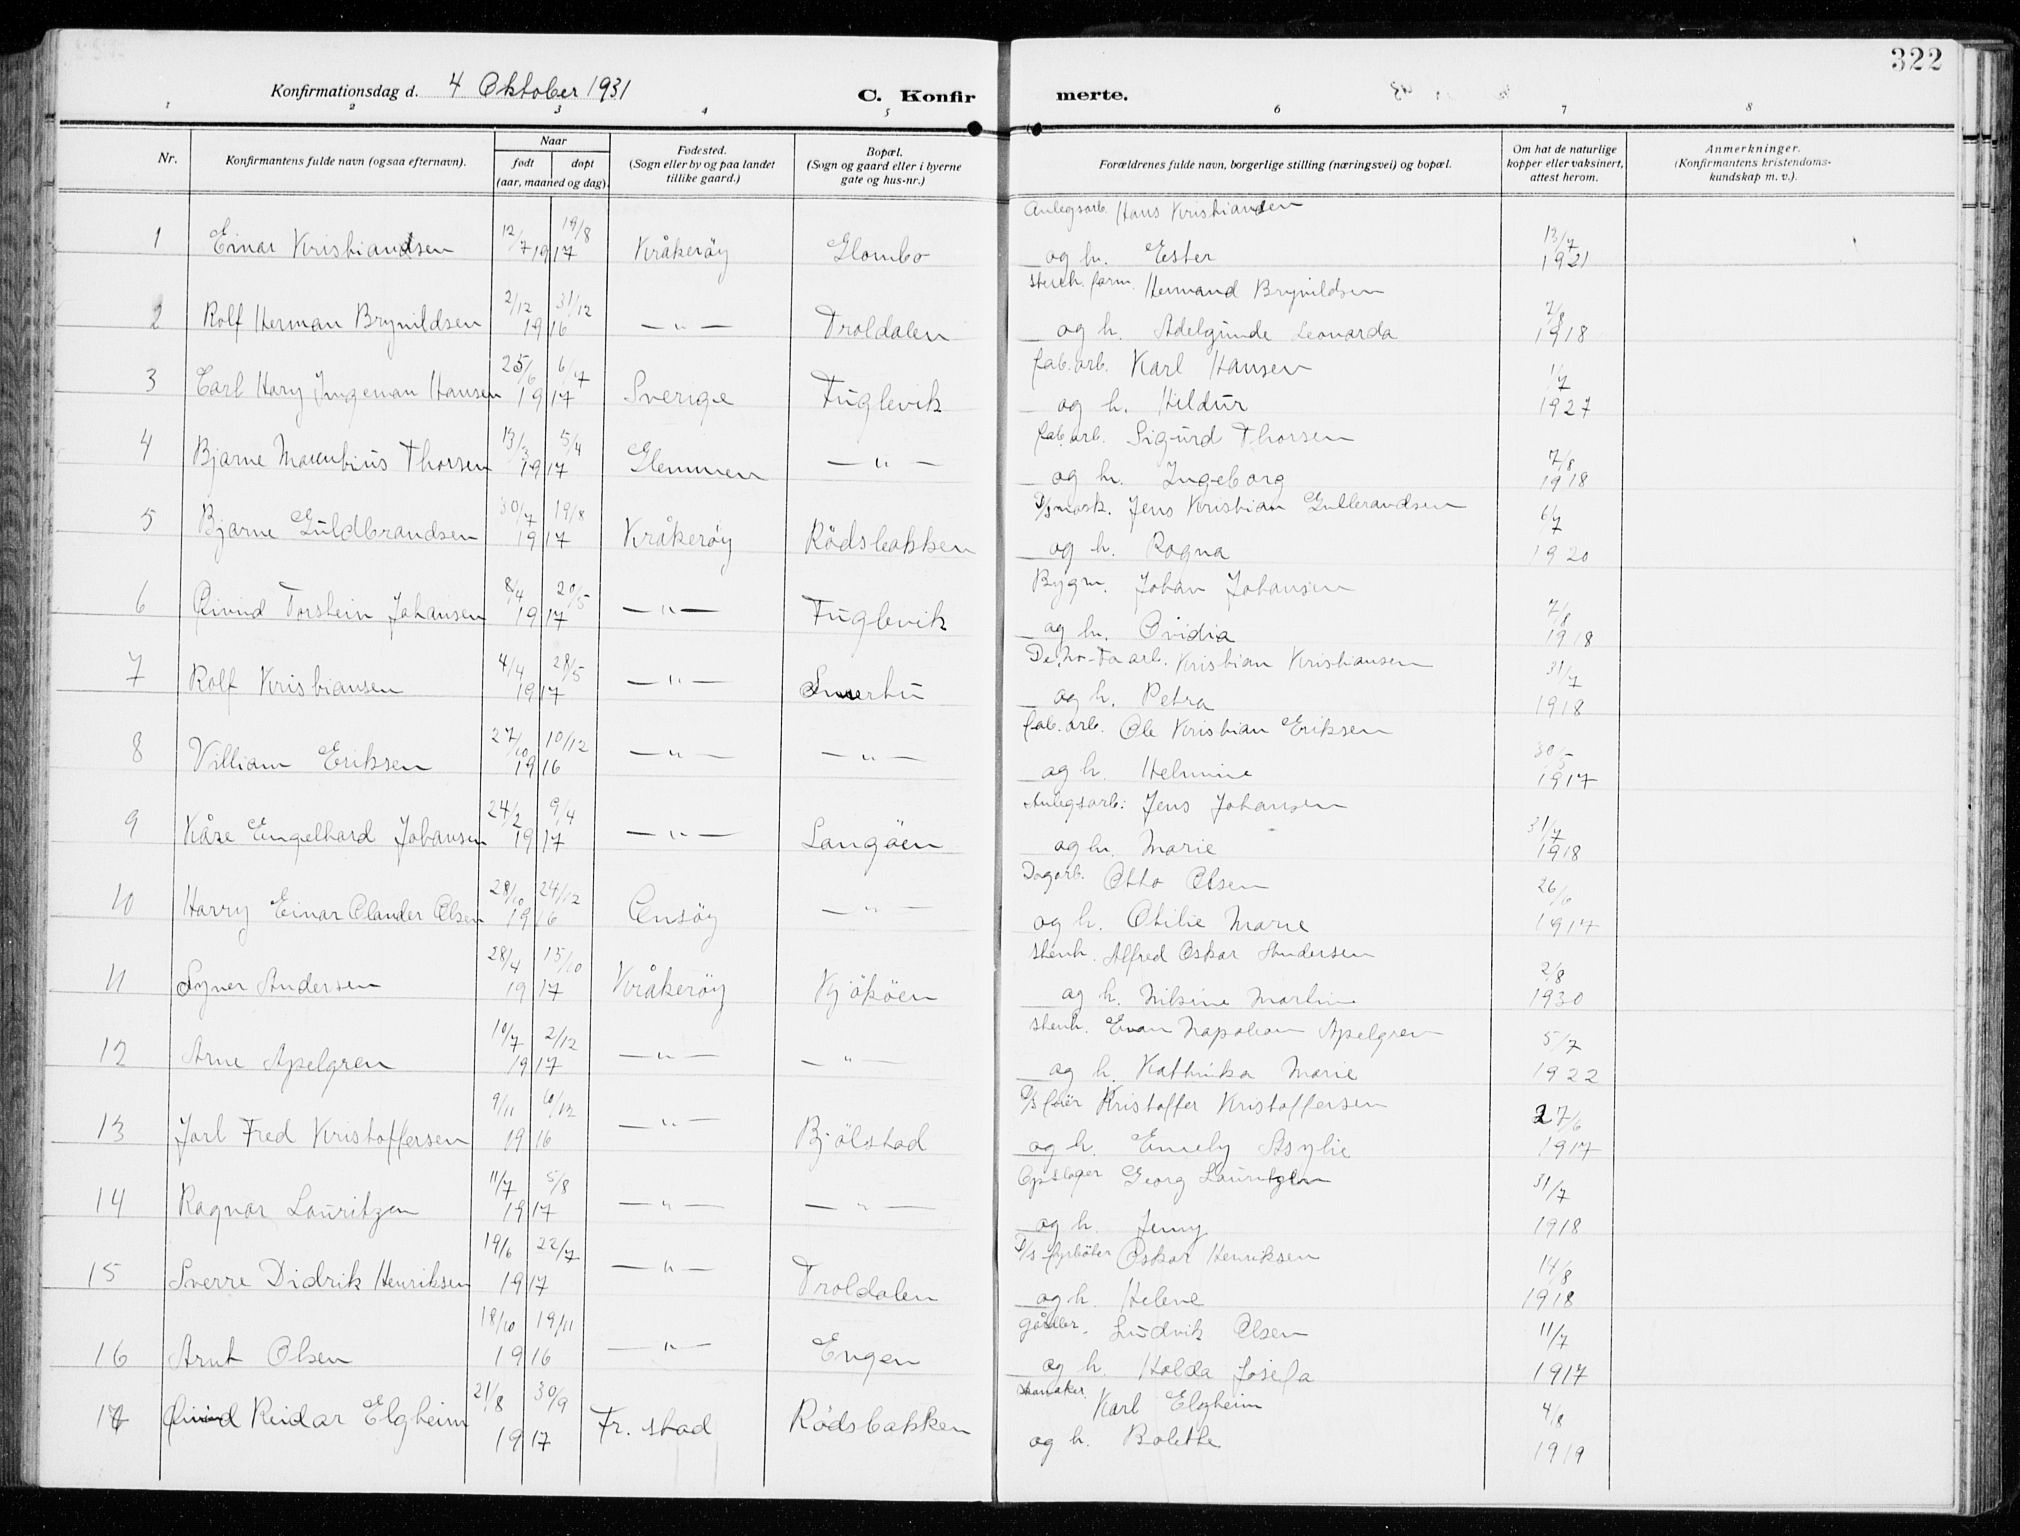 322
Konfirmationsdag d. 4 Oktober 1931
C. Konfirmerte.
1 2 3 4 5 6 7 8
Nr.
Konfirmantens fulde navn (ogsaa efternavn).
Naar
født døpt
(aar, maaned og dag).
Fødested.
(Sogn eller by og paa landet
tillike gaard.)
Bopæl.
(Sogn og gaard eller i byerne
gate og hus-nr.)
Forældrenes fulde navn, borgerlige stilling (næringsvei) og bopæl.
Om hat de naturlige
kopper eller vaksinert,
attest herom.
Anmerkninger.
(Konfirmantens kristendoms-
kundskap m. v.).
Anlegsarb. Hans Kristiansen
1 Einar Kristiansen 12/7 19/8 1917 Kråkerøy Glombo og h. Ester 13/7 1921
stenh. form. Hermand Brynildsen
2 Rolf Herman Brynildsen 2/12 31/12 1916 — " — Troldalen og h. Adelgunde Leonarda 7/8 1918
fab. arb. Karl Hansen
3 Carl Hary Ingeman Hansen 25/6 6/7 1917 Sverige Fuglevik og h. Hildur 1/7 1927
fab. arb. Sigurd Thorsen
4 Bjarne Thorsen 13/3 5/4 1917 Glemmen — " — og h. Ingeborg 7/8 1918
Jens Kristian Gulbrandsen
5 Bjarne Guldbrandsen 30/7 19/8 1917 Kråkerøy Rödsbakken og h. Ragna 6/7 1920
Bygm. Johan Johansen
6 Öivind Torstein Johansen 8/4 20/5 1917 — " — Fuglevik og h. Ovidia 7/8 1918
De-No-Fa arb. Kristian Kristiansen
7 Rolf Kristiansen 4/4 28/5 1917 — " — og h. Petra 31/7 1918
fab. arb. Ole Kristian Eriksen
8 Villiam Eriksen 27/10 10/12 1916 — " — — " — og h. Helmine 30/5 1917
Anlegsarb. Jens Johansen
9 Kåre Engelhard Johansen 24/2 9/4 1917 — " — Langöen og h. Marie 31/7 1918
Dagarb. Otto Olsen
10 Harry Einar Olander Olsen 28/10 24/12 1916 Onsöy — " — og h. Otilie Marie 26/6 1917
stenh. Alfred Oskar Andersen
11 Syner Andersen 28/4 15/10 1917 Kråkerøy Kjököen og h. Nilsine Martine 2/8 1930
stenh. Evan Napoleon Apelgren
12 Arne Apelgren 10/7 2/12 1917 — " — — " — og h. Kathinka Marie 5/7 1922
Kristoffer Kristoffersen
13 Jarl Fred Kristoffersen 9/11 10/12 1916 — " — Bjölstad og h. Emely Asylie 27/6 1917
Opslager Georg Lauritzen
14 Ragnar Lauritzen 11/7 5/8 1917 — " — — " — og h. Jenny 31/7 1918
D/s fyrböter Oskar Henriksen
15 Sverre Didrik Henriksen 19/6 22/7 1917 — " — Troldalen og h. Helene 14/8 1918
Ludvik Olsen
16 Arnt Olsen 18/10 19/11 1916 — " — Engen og h. Holda Josefa 11/7 1917
Karl Elgheim
17 Öivind Reidar Elgheim 21/8 30/9 1917 Fr. stad Rödsbakken og h. Bolethe 4/8 1919